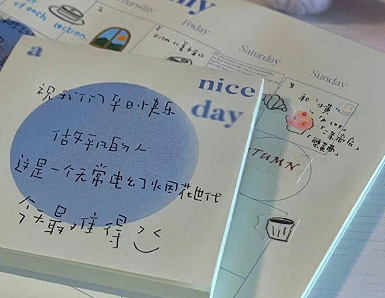 of each section.
Thursday
Friday
Saturday
Sunday
a nice day
祝我们平日快乐
的人
这是一个无常电幻烟花世代
今天最难得
TUMN